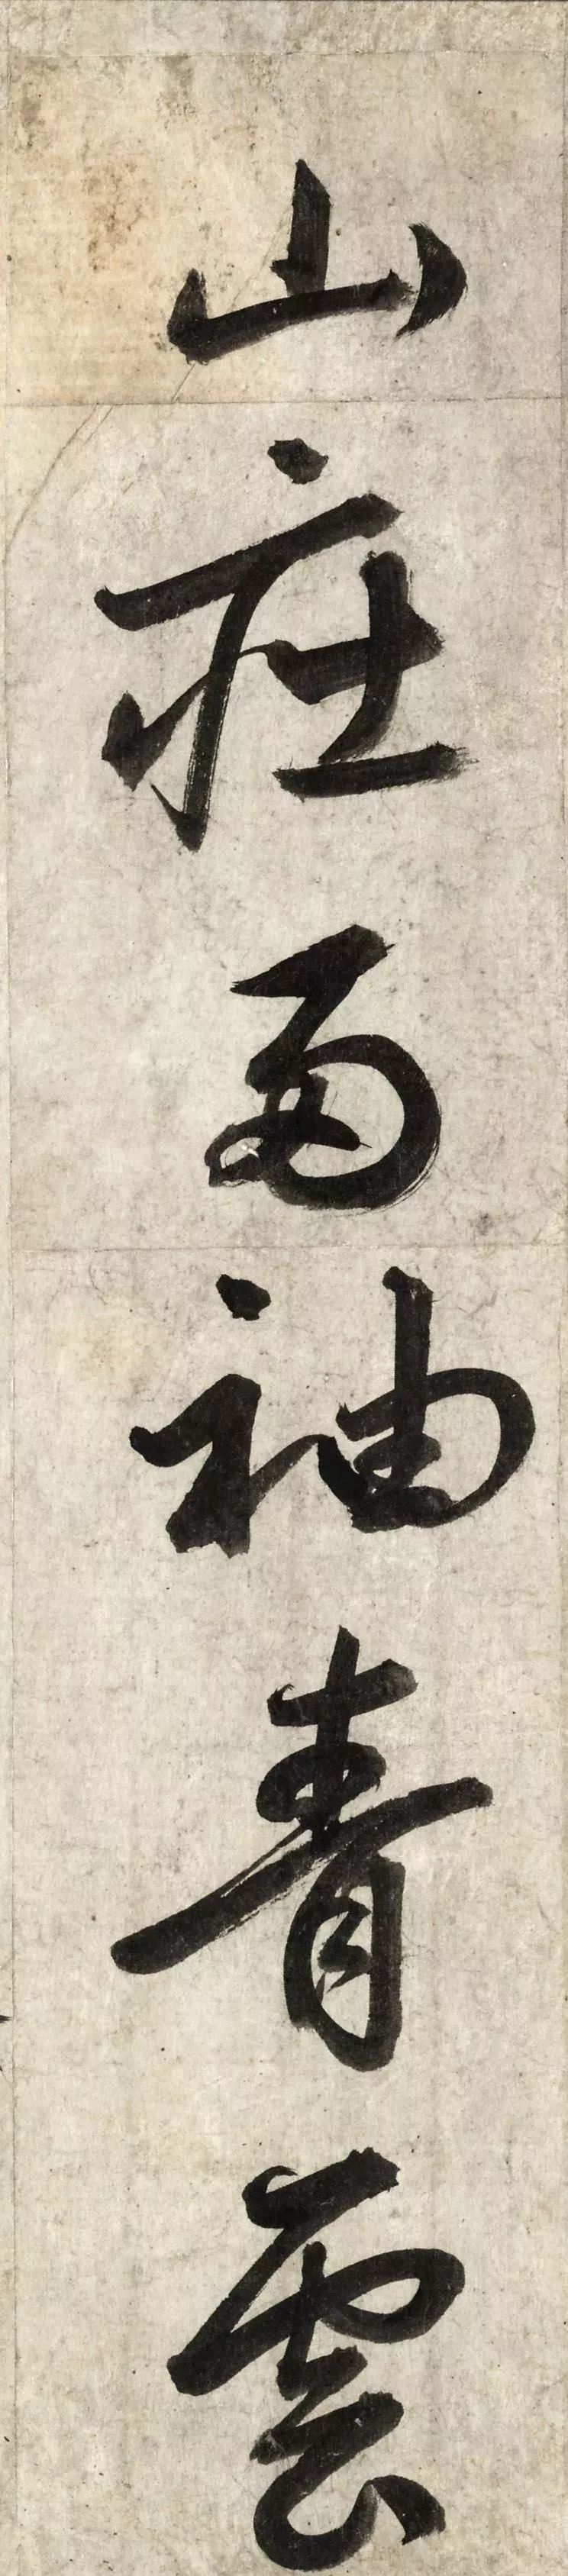 山莊兩袖青雲